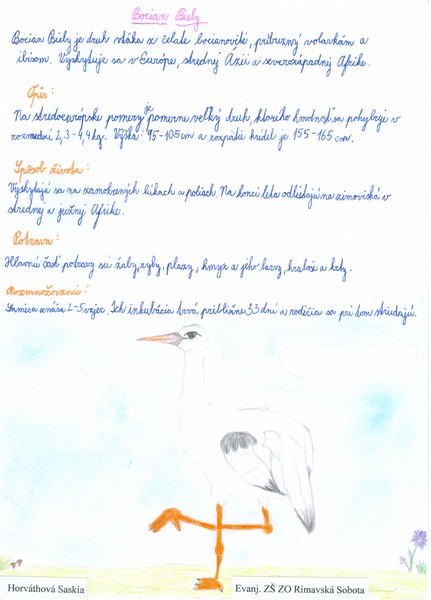 Bocian Biely
Bocian Biely je druh vtáka z čelade bocianovité, príbuzný volavkám a
ibisom. Vyskytuje sa v Európe, strednej Ázii a severozápadnej Afrike.
Opis:
Na stredoeurópske pomery je pomerne veľký druh, ktorého hmotnosť sa pohybuje v
rozmedzí 2,3-4,4kg. Výška: 95-105cm a rozpätie krídel je 155-165cm.
Spôsob života:
Vyskytajú sa na zamokrených lúkach a poliach. Na konci leta odlietajú na zimoviská v
strednej a južnej Afrike.
Potrava:
Hlavnú časť potravy sú žaby, ryby, plazy, hmyz a jeho larvy, hraboše a krty.
Rozmnožovanie:
Samica znáša 2-5 vajec. Ich inkubácia trvá približne 33 dní a rodičia sa pri tom striedajú.
Horváthová Saskia
Evanj. ZŠ ZO Rimavská Sobota